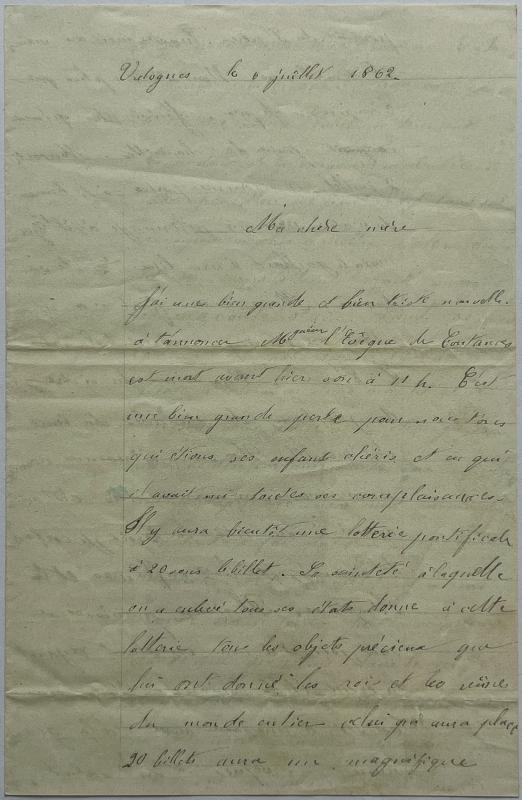 Valognes le 6 juillet 1862.
Ma chère mère
J'ai une bien grande et bien triste nouvelle
à t'annoncer Mgneur l'Evêque de Coutances
est mort avant hier soir à 11 h. C'est
une bien grande perte pour nous tous
qui étions ses enfants chéris et en qui
il avait mis toutes ses complaisances.
Il y aura bientôt une lotterie pontificale
à 20 sous le billet. Sa sainteté à laquelle
on a enlevé tous ses états donne à cette
lotterie tous les objets précieux que
lui ont donné les rois et les reines
du monde entier celui qui aura placé
20 billets aura un magnifique